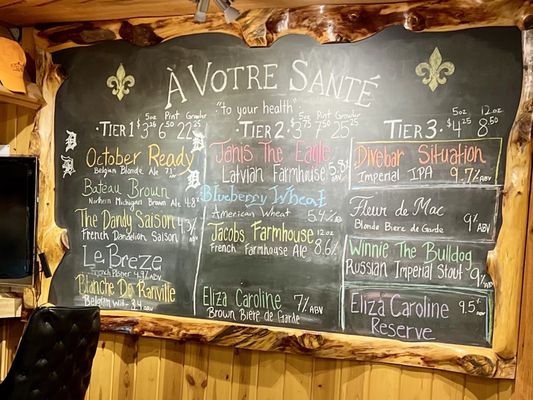 À VOTRE SANTÉ
"to your health"
5oz Pint Growler
TIER 1 $3.25 6.50 22.25
October Ready
Belgian Blonde Ale 7%
Bateau Brown
Northern Michigan Brown Ale 4.8%
The Dandy Saison
French Dandelion Saison
Le Breze
French Pilsner 4.7%
Blanche Du Ranville
Belgian Wit
5oz Pint Growler
TIER 2 $3.75 7.50 25.25
Janis The Eagle
Latvian Farmhouse 5.8%
Blueberry Wheat
American Wheat 5.4%
Jacobs Farmhouse
French Farmhouse Ale 8.6%
Eliza Caroline 7% ABV
Brown Bière de Garde
5oz 12oz
TIER 3 $4.25 8.50
Divebar Situation
Imperial IPA 9.7% ABV
Fleur de Mac 9% ABV
Blonde Bière de Garde
Winnie The Bulldog
Russian Imperial Stout 9% ABV
Eliza Caroline 9.5% ABV
Reserve